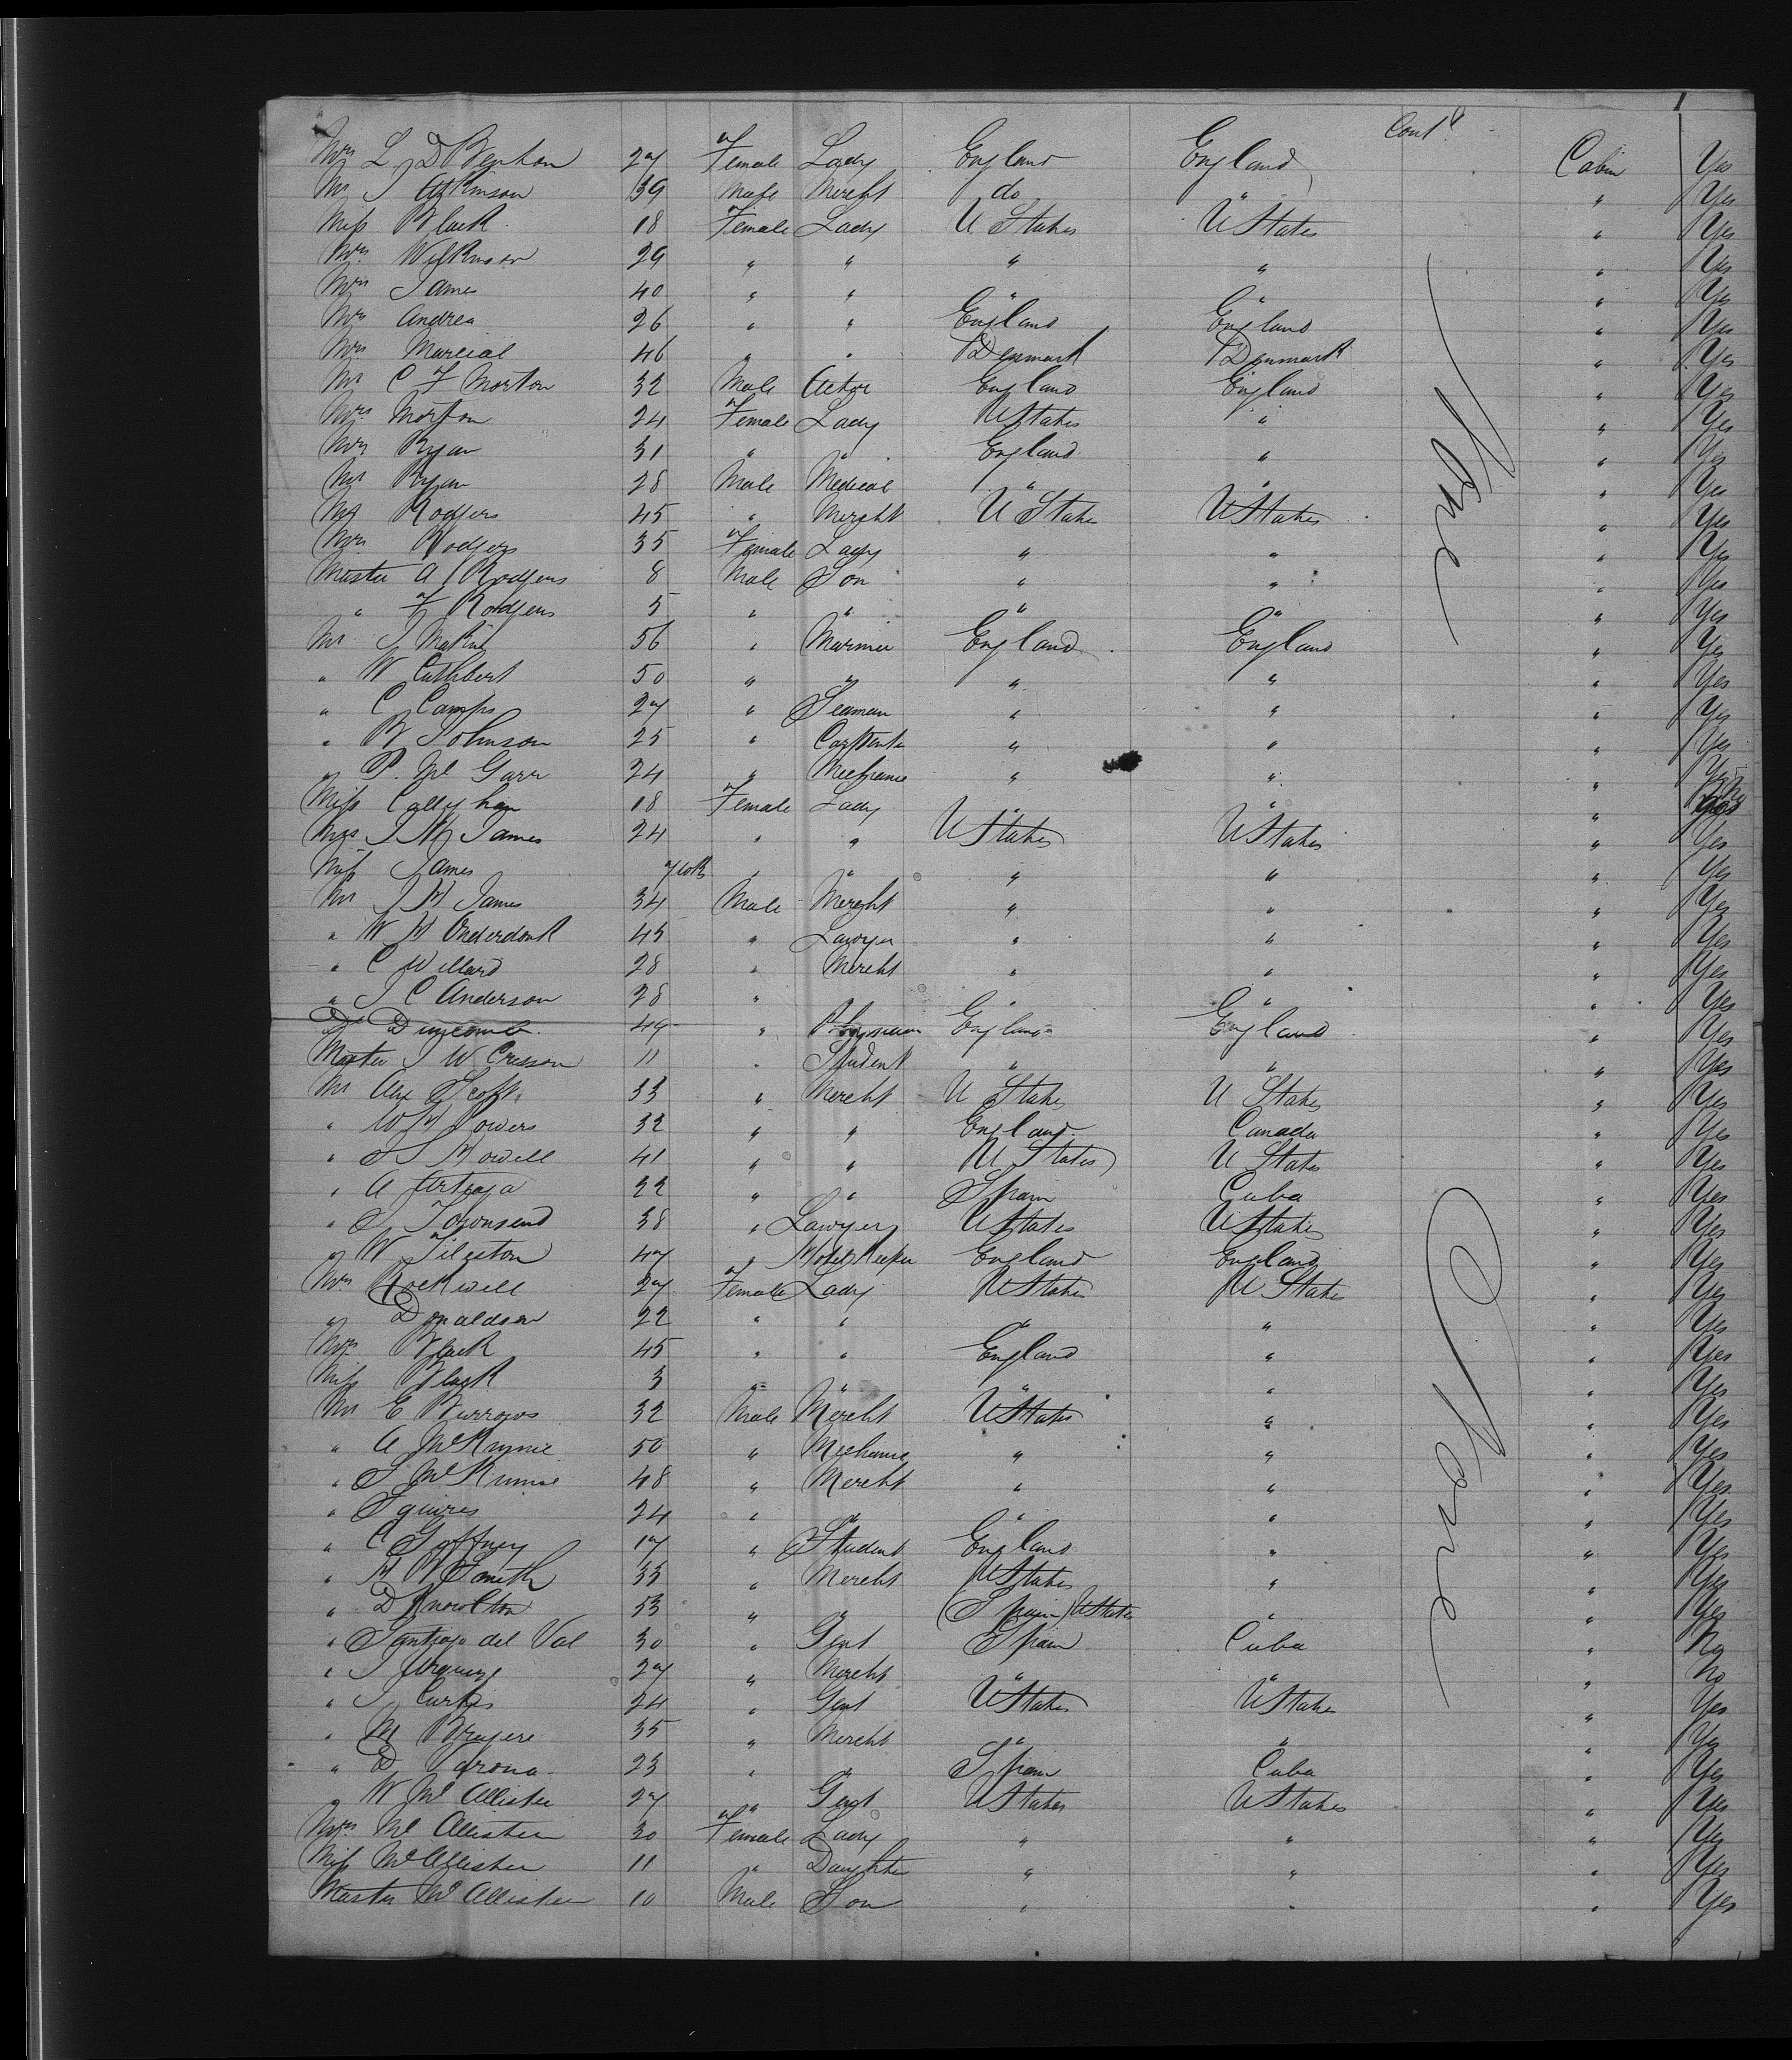 Contd
Mrs L D Benham 27 Female Lady England England Cabin Yes
Mr J Atkinson 39 Male Mercht do " " Yes
Miss Black 18 Female Lady U States U States " Yes
Mrs Wilkinson 29 " " " " " Yes
Mrs James 40 " " " " " Yes
Mrs Andrea 26 " " England England " Yes
Mrs Marcial 46 " " Denmark Denmark " Yes
Mr C F Morton 32 Male Actor England England " Yes
Mrs Morton 24 Female Lady U States " " Yes
Mrs Ryan 31 " " England " " Yes
Mr Ryan 28 Male Medical " " " Yes
Mr Rodgers 45 " Mercht U States U States " Yes
Mrs Rodgers 35 Female Lady " " " Yes
Master A Rodgers 8 Male Son " " " Yes
" F Rodgers 5 " " " " " Yes
Mr J Makin 56 " Mariner England England " Yes
" W Cuthbert 50 " " " " " Yes
" C Camps 27 " Seaman " " " Yes
" B Johnson 25 " Carpenter " " " Yes
" P. Mc Garr 24 " Mechanic " " " Yes
Miss Callyhan 18 Female Lady " " "
Mrs J H James 24 " " U States U States " Yes
Miss James 7 " " " " " Yes
Mr J H James 34 Male Mercht " " " Yes
" W H Onderdonk 45 " Lawyer " " " Yes
" C Willard 28 " Mercht " " " Yes
" J C Anderson 28 " " " " Yes
Dr Duncomb 49 " Physician England England " Yes
Master J W Cresson 11 " Student " " " Yes
Mr Alex Scott 33 " Mercht U States U States " Yes
" W H Powers 32 " " England Canada " Yes
" S Howell 41 " " U States U States " Yes
" A Artiaga 22 " " Spain Cuba " Yes
" S Townsend 38 " Lawyer U States U States " Yes
" W Tileston 47 " Hotel Keeper England England " Yes
Mrs Rockwell 27 Female Lady U States U States " Yes
" Donaldson 22 " " " " " Yes
Mrs Black 45 " " England " " Yes
Miss Black 3 " " " " " Yes
Mr E Burrows 32 Male Mercht U States " " Yes
" A McKinnie 50 " Mechanic " " " Yes
" S McKinnie 48 " Mercht " " " Yes
" Squires 24 " " " " " Yes
" C Goffney 17 " Student England " " Yes
" H W Smith 33 " Mercht U States " " Yes
" D Knowlton 53 " " (Spain) U States " " Yes
" Santiago del Val 30 " Gent Spain Cuba " No
" J 27 " Mercht " " " No
" J Curtis 24 " Gent U States U States " Yes
" M Bruyere 35 " Mercht " " " Yes
" D Varona 23 " " Spain Cuba " Yes
" W Mc Allister 27 " Gent U States U States " Yes
Mrs Mc Allister 30 Female Lady " " " Yes
Miss McAllister 11 " Daughter " " " Yes
Master Mc Allister 10 Male Son " " " Yes
None
None